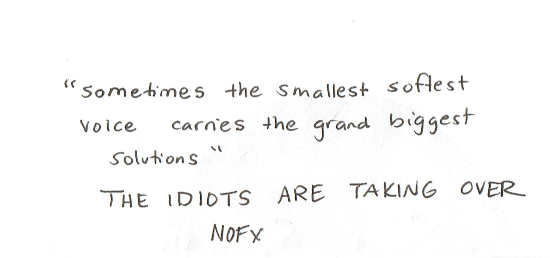 "sometimes the smallest softest
voice carries the grand biggest
solutions"
THE IDIOTS ARE TAKING OVER
NOFX